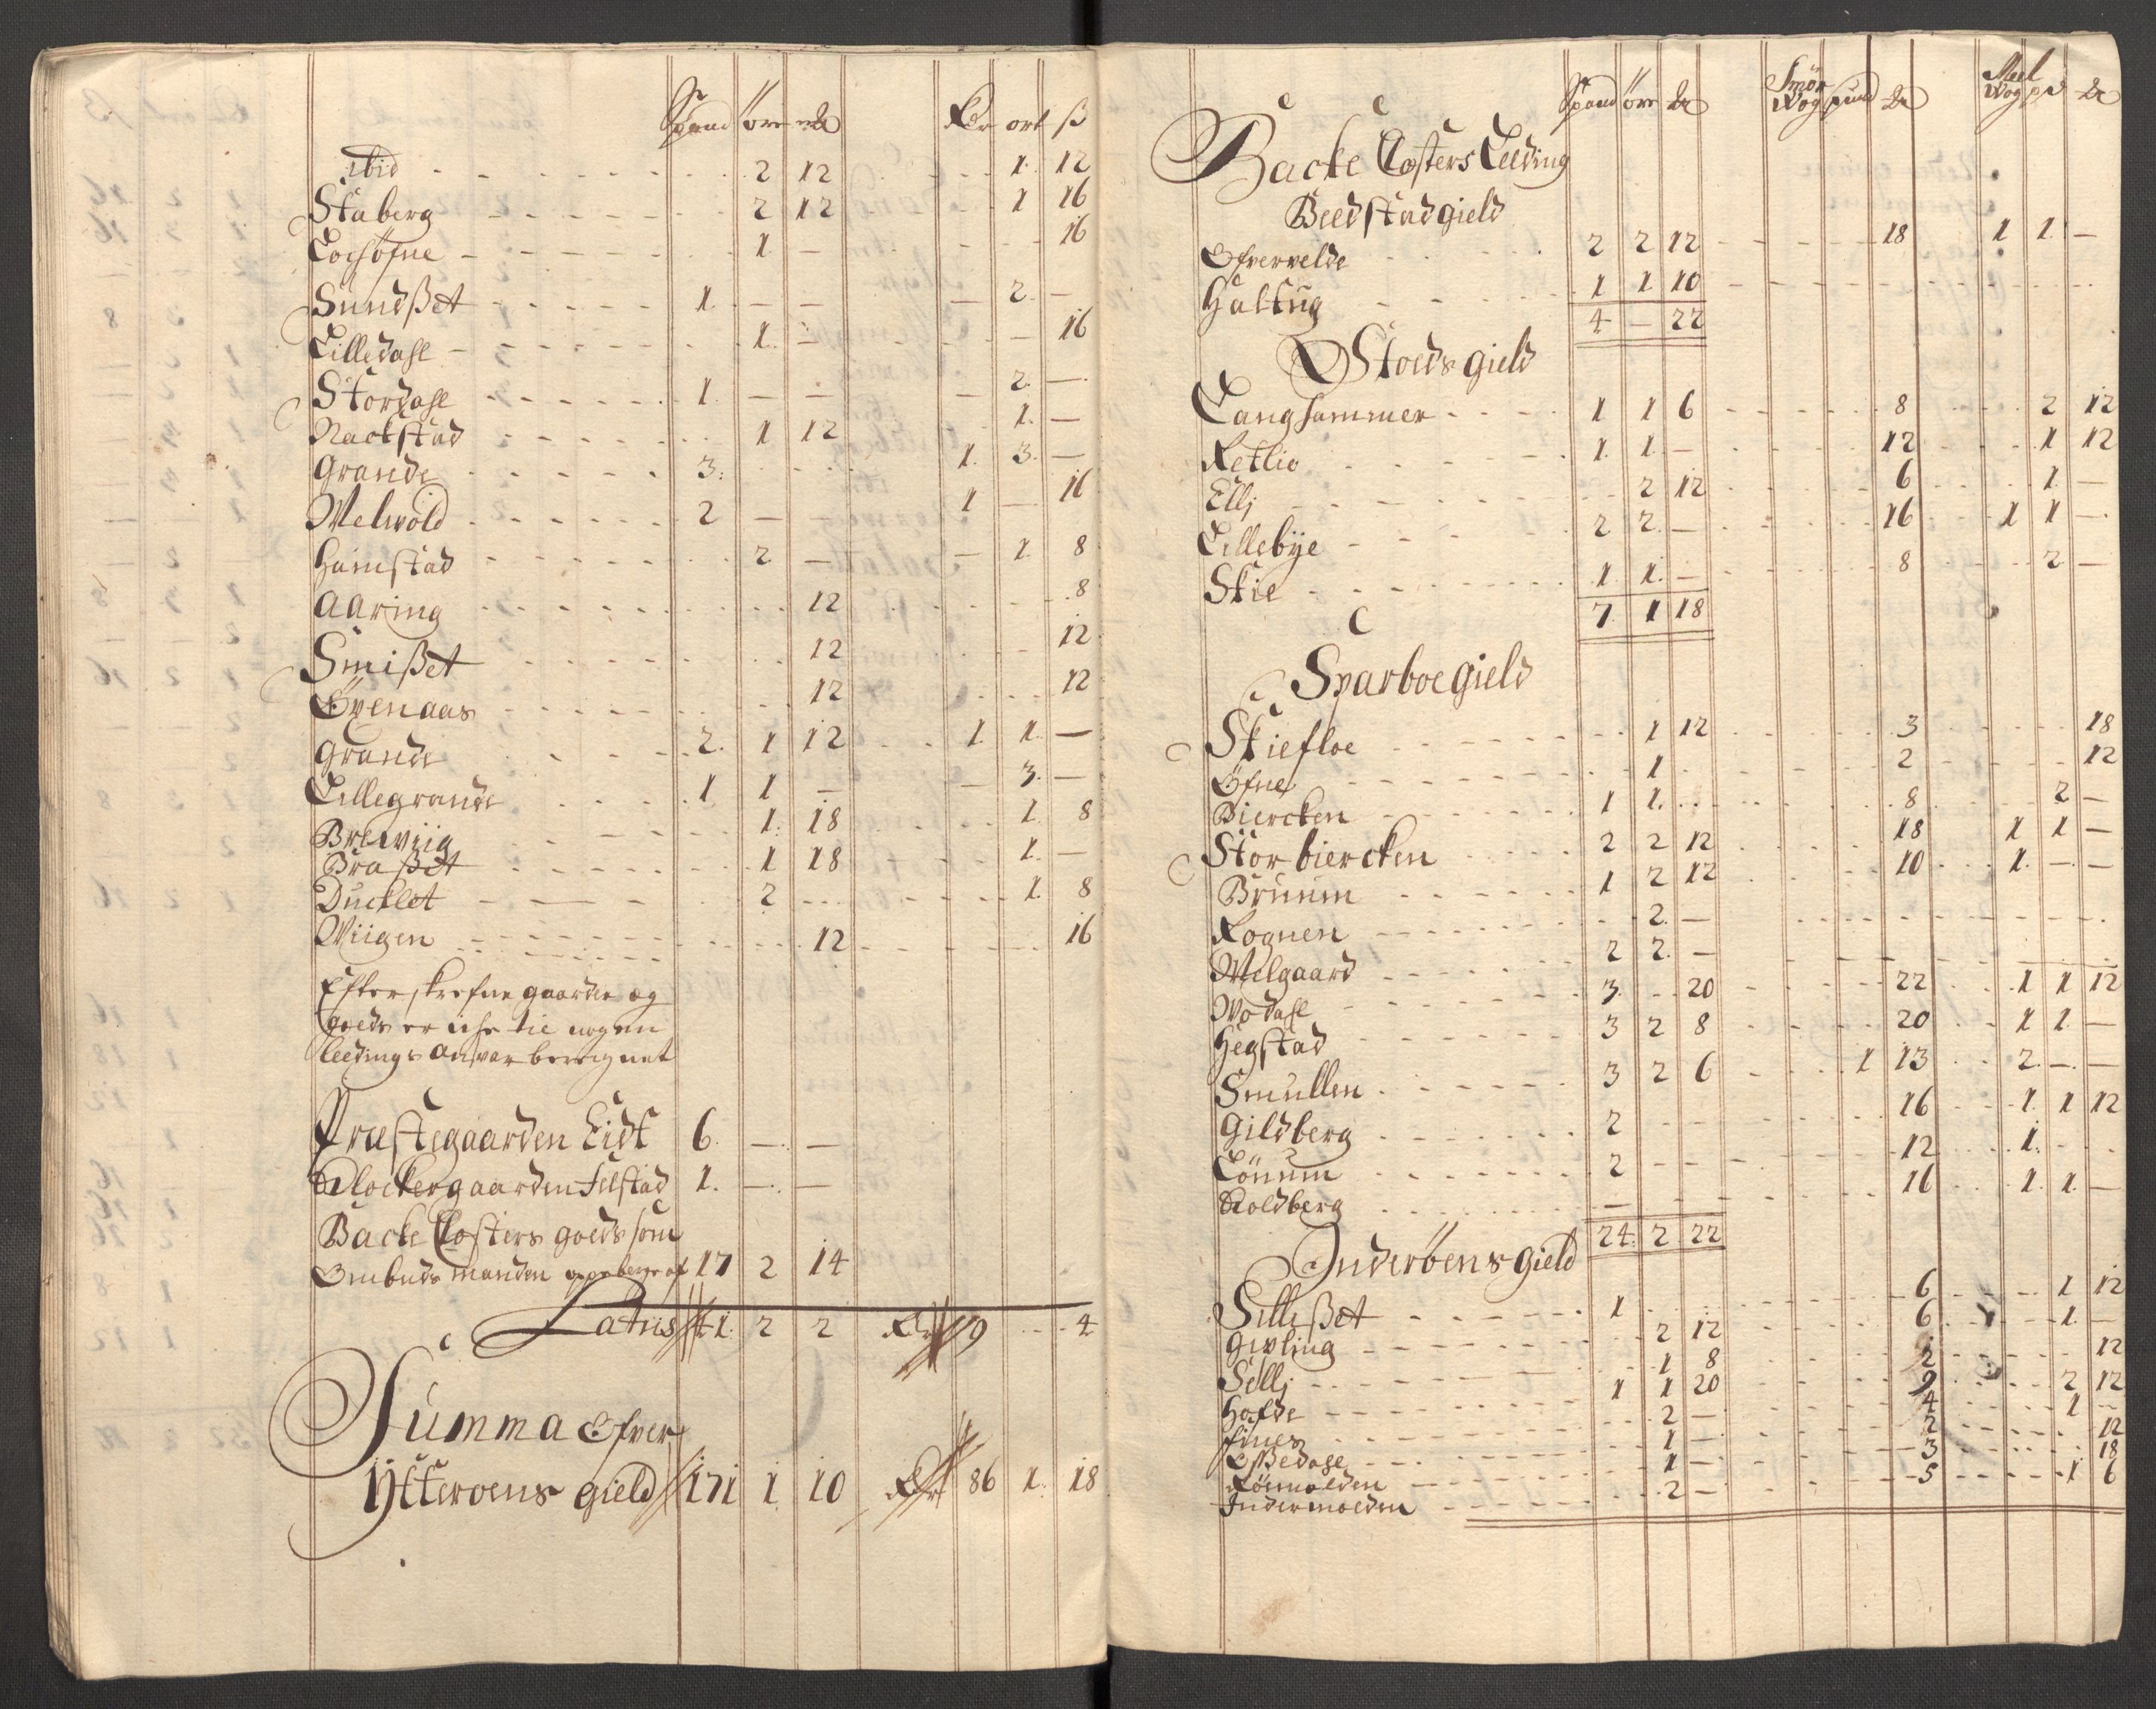 Spand öre mk Rdr ort ß
ibid 2 12 1 12
Staberg 2 12 1 16
Lorsöfne 1 — 16
Sundßet 1 — — — 2 —
Lilledahl 1 — — 16
Stordahl 1 — — — 2 —
Nackstad 1 12 1 —
Grande 3 1 3 —
Melwold 2 — — 1 — 16
Hamstad 2 — — 1 8
Aaring 12 8
Smißet 12 12
Öyenaas 12 12
Grande 2 1 12 1 1 —
Lillegrande 1 1 — — 3 —
Brewiig 1 18 1 8
Braßet 1 18 1 —
Ducklet 2 1 8
Wiigen 12 16
Efterskrefne gaarder og
goeds er iche tie nogen
leedings anpar beregnet
Præstegaarden Eidt 6 — —
Klockergaarden Filstad 1 — —
Backe Closters goeds som
Ombuds manden oppebærer af 17 2 14
Latus 41 2 2 Rdr 19 4
Summa Ofver
Ytterøens gield 171 1 10 Rdr 86 1 18
Spand öre mk Smör Wog pund mk Meel Wog pd mk
Backe Closters Leeding
Beedstad gield
Ofvervelde 2 2 12 18 1 1 —
Haltug 1 1 10
4 — 22
Stoeds gield
Langhammer 1 1 6 8 2 12
Retlie 1 1 — 12 1 12
Ellj 2 12 6 1 —
Lillebÿe 2 2 — 16 1 1 —
Skie 1 1 — 8 2 —
7 1 18
Sparboe gield
Skiefloe 1 12 3 18
Öfne 1 2 12
Biercken 1 1 8 2 —
Storbiercken 2 2 12 18 1 1 —
Bruum 1 2 12 10 1 — —
Rognen 2 —
Melgaard 2 2 —
Wodahl 3 20 22 1 1 12
Hegstad 3 2 8 20 1 1 —
Smullen 3 2 6 1 13 2 — —
Gildberg 2 16 1 1 12
Lönum 2 12 1
Koldberg — 16 1 1 —
24 2 22
Inderöens gield
Sillißet 1 6 1 12
Gipling 2 12 6 1 —
Sellj 1 8 2 12
Hofde 1 1 20 9 2 12
Fines 2 — 4 1 —
Oßedahl 1 — 2 12
Röemolden 1 — 3 18
Indermolden 2 — 5 1 6